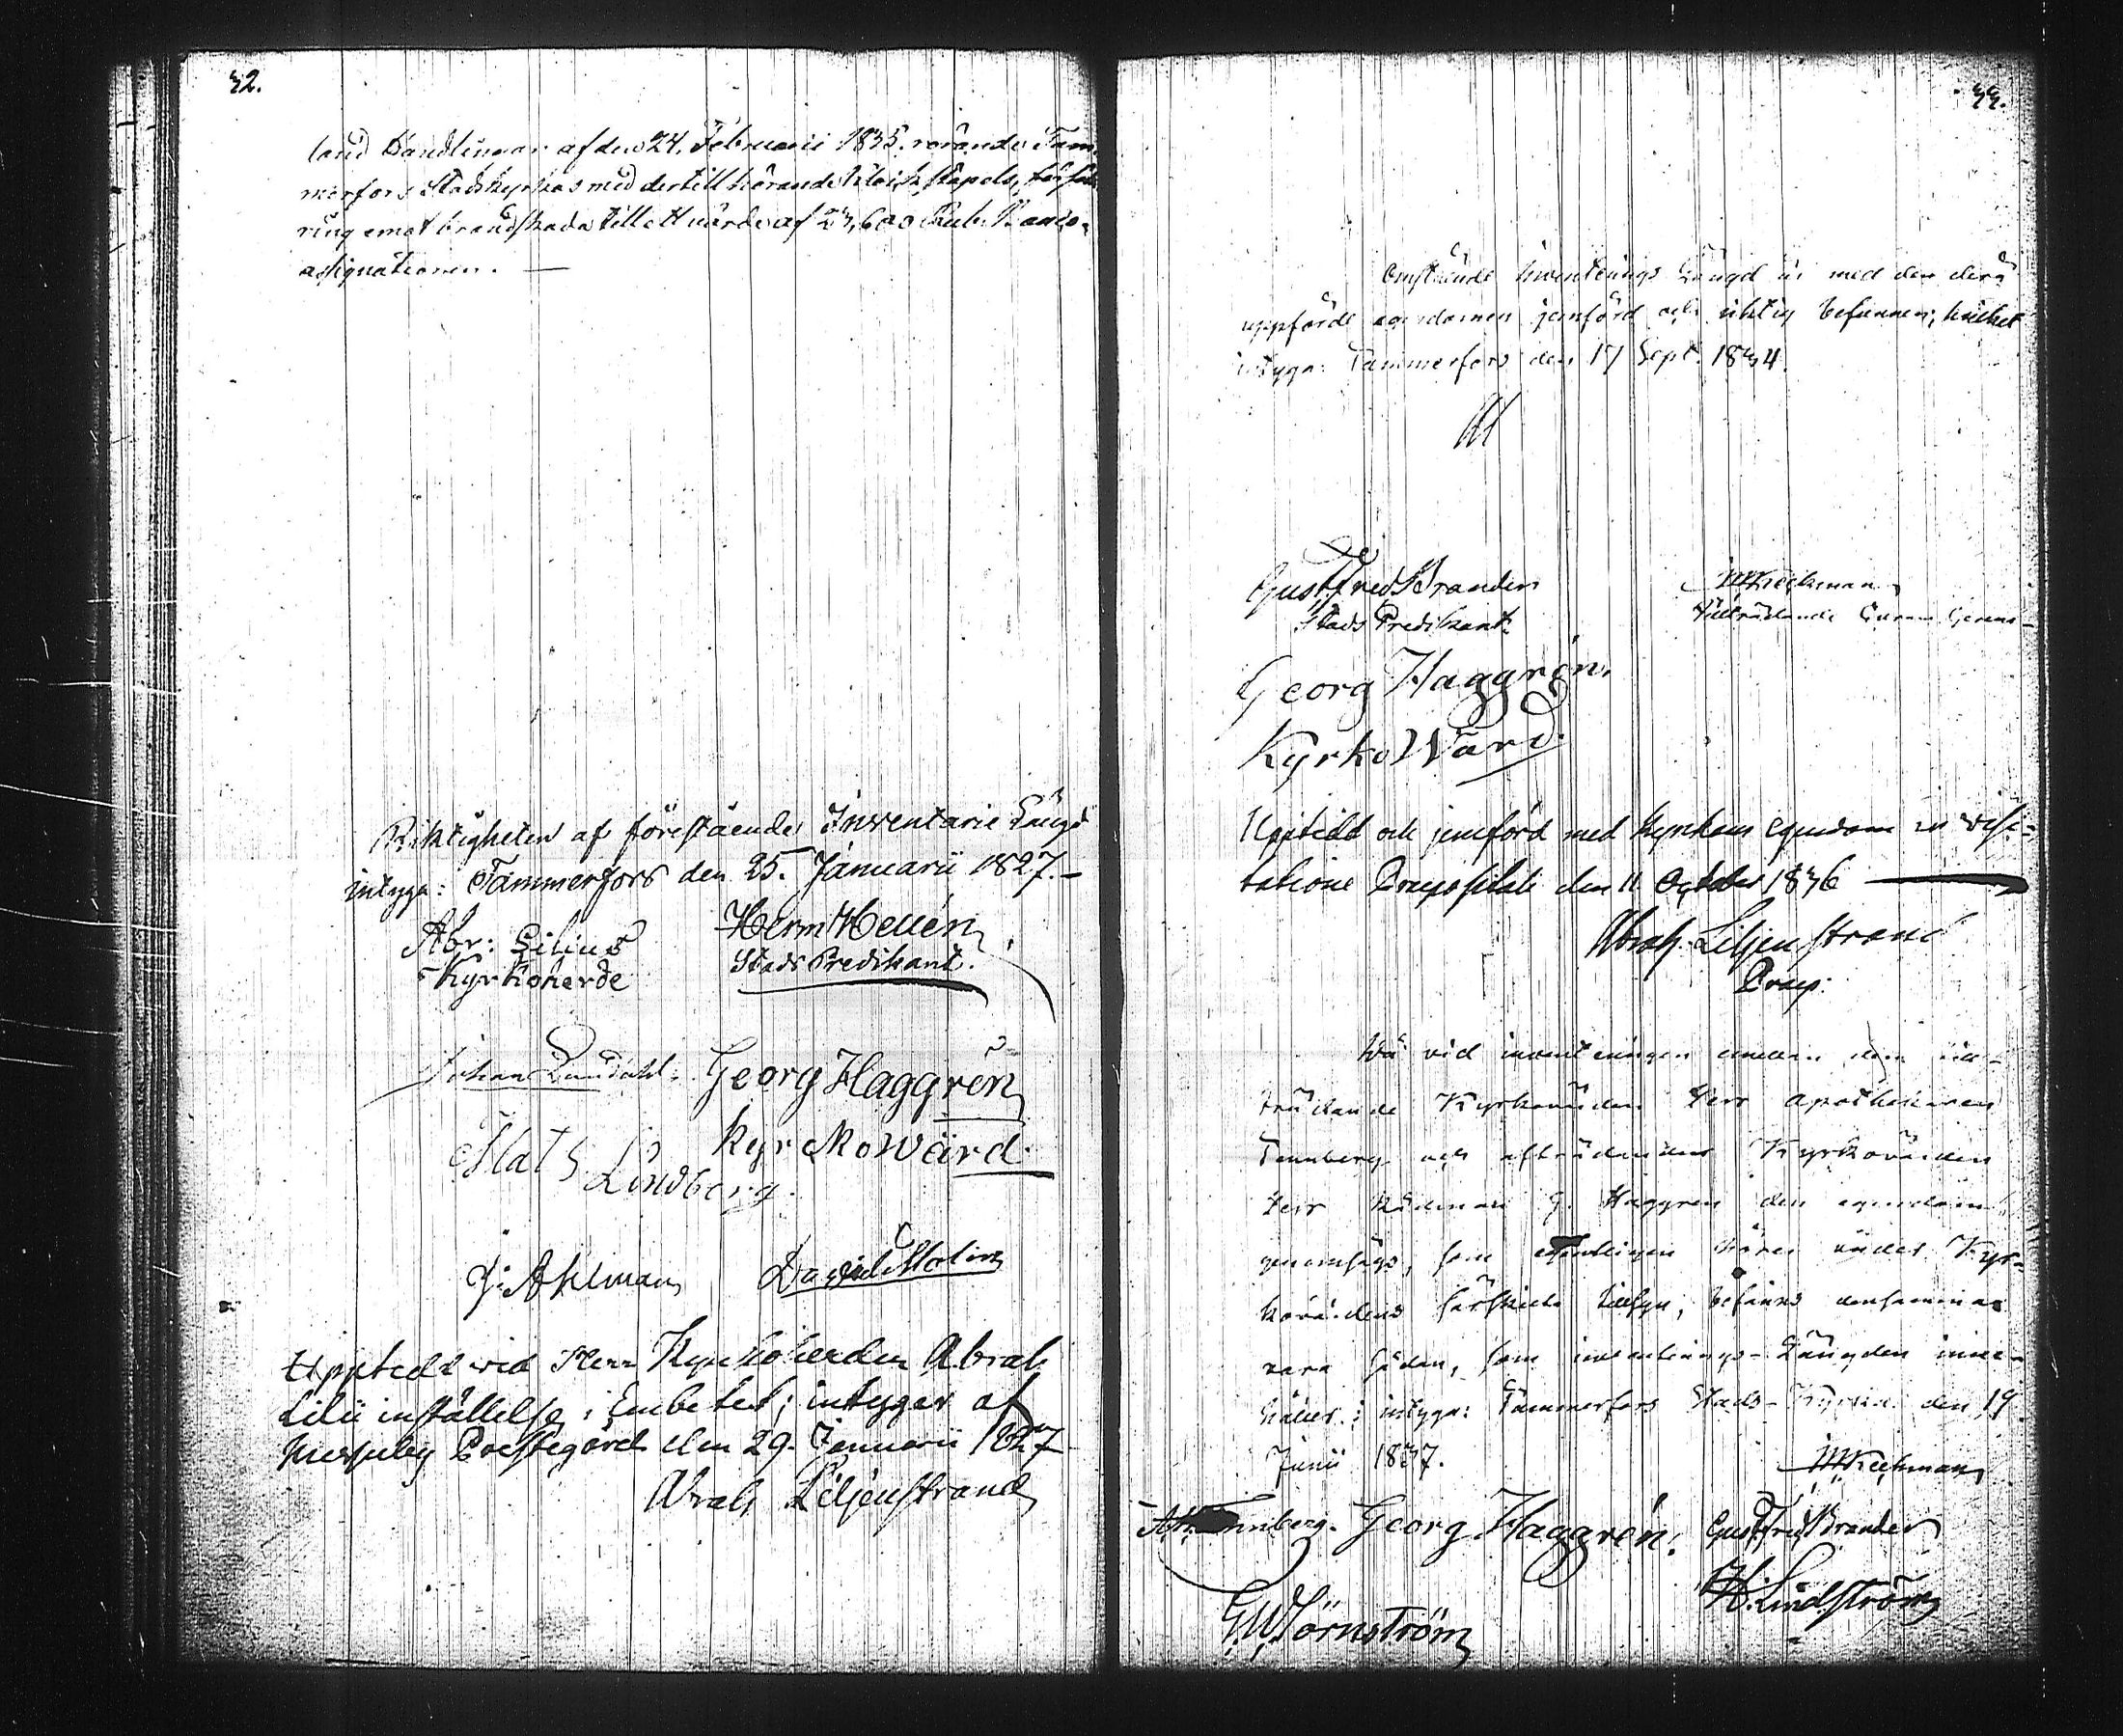 32.
land Handlingar af den 24. Februarii 1835. rörande Tam-
merfors Stadskyrkas med dertill hörande Klockstapels, försäk
ring emot brandskada till ett värde af 23,600 Rub. Banco-
assignationer. —
Riktigheten af förestående Inventarie Längd
intyga: Tammerfors den 25. Januarii 1827. —
Abr: Lilius
Kyrkoherde
Herm Hellén
Stads Predikant.
Johan Sundahl.
Georg Haggrén
Kyrckowärd.
Mats Lindberg.
J: Ahlman
David Molin
Uppteedt vid Herr Kyrkoherden Abrah
Lilii inställelse i Embetet; intygar af
Messuby Prestegård den 29. Januarii 1827
Abrah Liljenstrand
33.
Omstående inventerings Längd är med den derå
uppförde egendomen jemförd och riktig befunnen; hvilket
intyga: Tammerfors den 17 Sept. 1834.
Gust Fred Brander
Stads Predikant.
Tillträdande
Georg Haggrén.
Kyrko Wärd.
Uppteedt och jemförd med Kyrkans egendom in visi-
tatione Præpositali den 11 October 1836 —
Abrah. Liljenstrand
Præp.
Då vid inventeringen emellan den till-
trädande Kyrkovärden Herr Apothekaren
Tennberg och afträdande Kyrkovärden
Herr Rådman G. Haggren den egendom
genomsågs, som egentligen hörer under Kyr-
kovärdens särskilda tillsyn, befanns densamma
vara sådan, som inventerings-Längden inne-
håller; intyga: Tammerfors Stads-Kyrka den 19
Junii 1837.
Georg Haggrén.
Gust Fred Brander
H. Lindström
G. W. Törnström